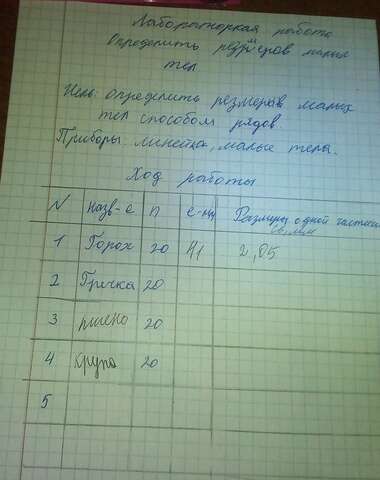 Лабораторная работа
Определить размеров малых
тел
Цель: определить размеров малых
тел способом рядов.
Приборы: линейка, малые тела.
Ход работы
N Назв-е n Размеры одной частицы
d, мм
1 Горох 20 41 2,05
2 Гречка 20
3 пшено 20
4 крупа 20
5